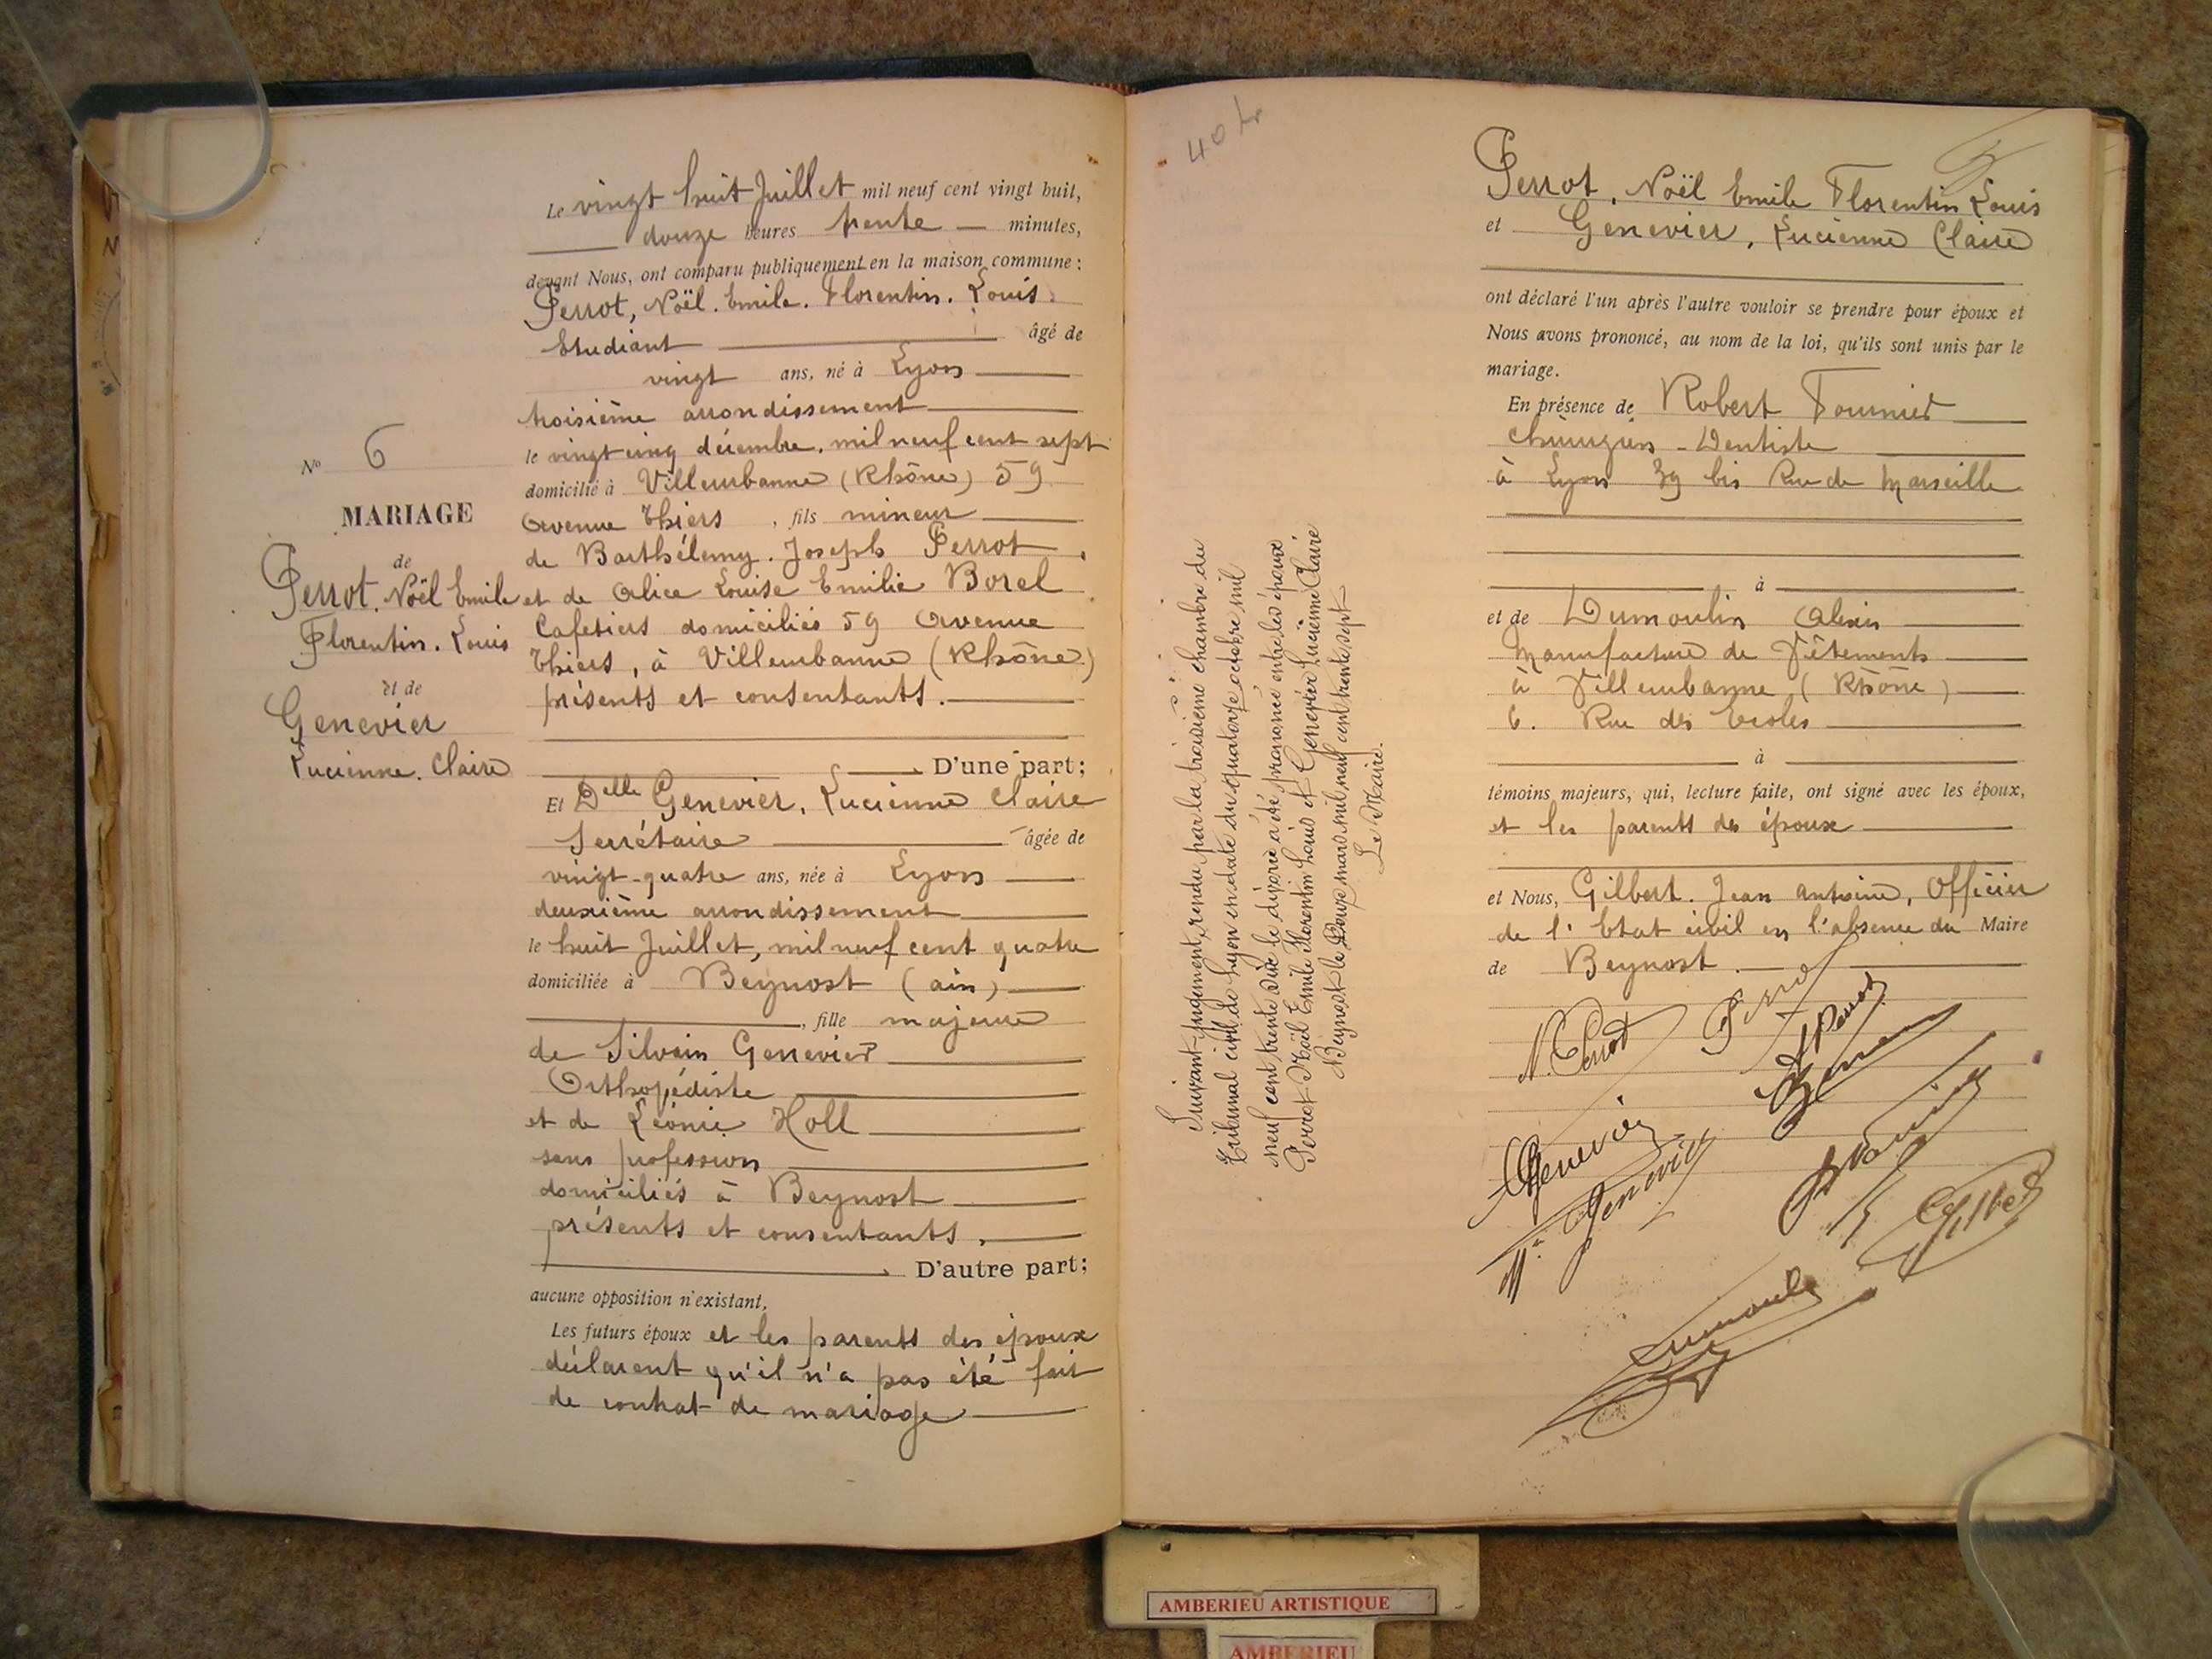 N° 6
MARIAGE
de
Perrot, Noël Emile
Florentin. Louis
et de
Genevier
Lucienne. Claire
Le vingt huit Juillet mil neuf cent vingt huit,
douze heures trente minutes,
devant Nous, ont comparu publiquement en la maison commune :
Perrot, Noël. Emile. Florentin. Louis.
Etudiant âgé de
vingt ans, né à Lyon
troisième arrondissement
le vingt cinq décembre, mil neuf cent sept
domicilié à Villeurbanne (Rhône) 59
Avenue Thiers, fils mineur
de Barthélemy. Joseph Perrot
et de Alice Louise Emilie Borel
Cafetiers domiciliés 59 Avenue
Thiers, à Villeurbanne (Rhône)
présents et consentants.
D'une part;
Et Delle Genevier, Lucienne Claire
Serrétaire âgée de
vingt-quatre ans, née à Lyon
deuxième arrondissement
le huit Juillet, mil neuf cent quatre
domiciliée à Beynost (ain)
, fille majeure
de Silvain Genevier
Orthopédiste
et de Léonie Holl
sans profession
domiciliés à Beynost
présents et consentants,
D'autre part;
aucune opposition n'existant,
Les futurs époux et les parents des époux
déclarent qu'il n'a pas été fait
de contrat de mariage
40
Suivant jugement rendu par la troisième chambre du
Tribunal civil de Lyon en date du quatorze octobre mil
neuf cent trente six le divorce a été prononcé entre les époux
Perrot Noël Emile Florentin Louis et Genevier Lucienne Claire
Beynost le Douze mars mil neuf cent trente sept
Le Maire.
Perrot, Noël Emile Florentin Louis
et Genevier, Lucienne Claire
ont déclaré l'un après l'autre vouloir se prendre pour époux et
Nous avons prononcé, au nom de la loi, qu'ils sont unis par le
mariage.
En présence de Robert Fournier
Chirurgien-Dentiste
à Lyon 39 bis Rue de Marseille
à
et de Dumoulin Alexis
Manufacture de Vêtements
à Villeurbanne (Rhône)
6. Rue des Ecoles
à
témoins majeurs, qui, lecture faite, ont signé avec les époux,
et les parents des époux
et Nous, Gilbert. Jean Antoine, Officier
de l'Etat civil en l'absence du Maire
de Beynost.
N. Perrot
Perrot
Genevier
Genevier
Gilbert
Dumoulin
AMBERIEU ARTISTIQUE
AMBERIEU